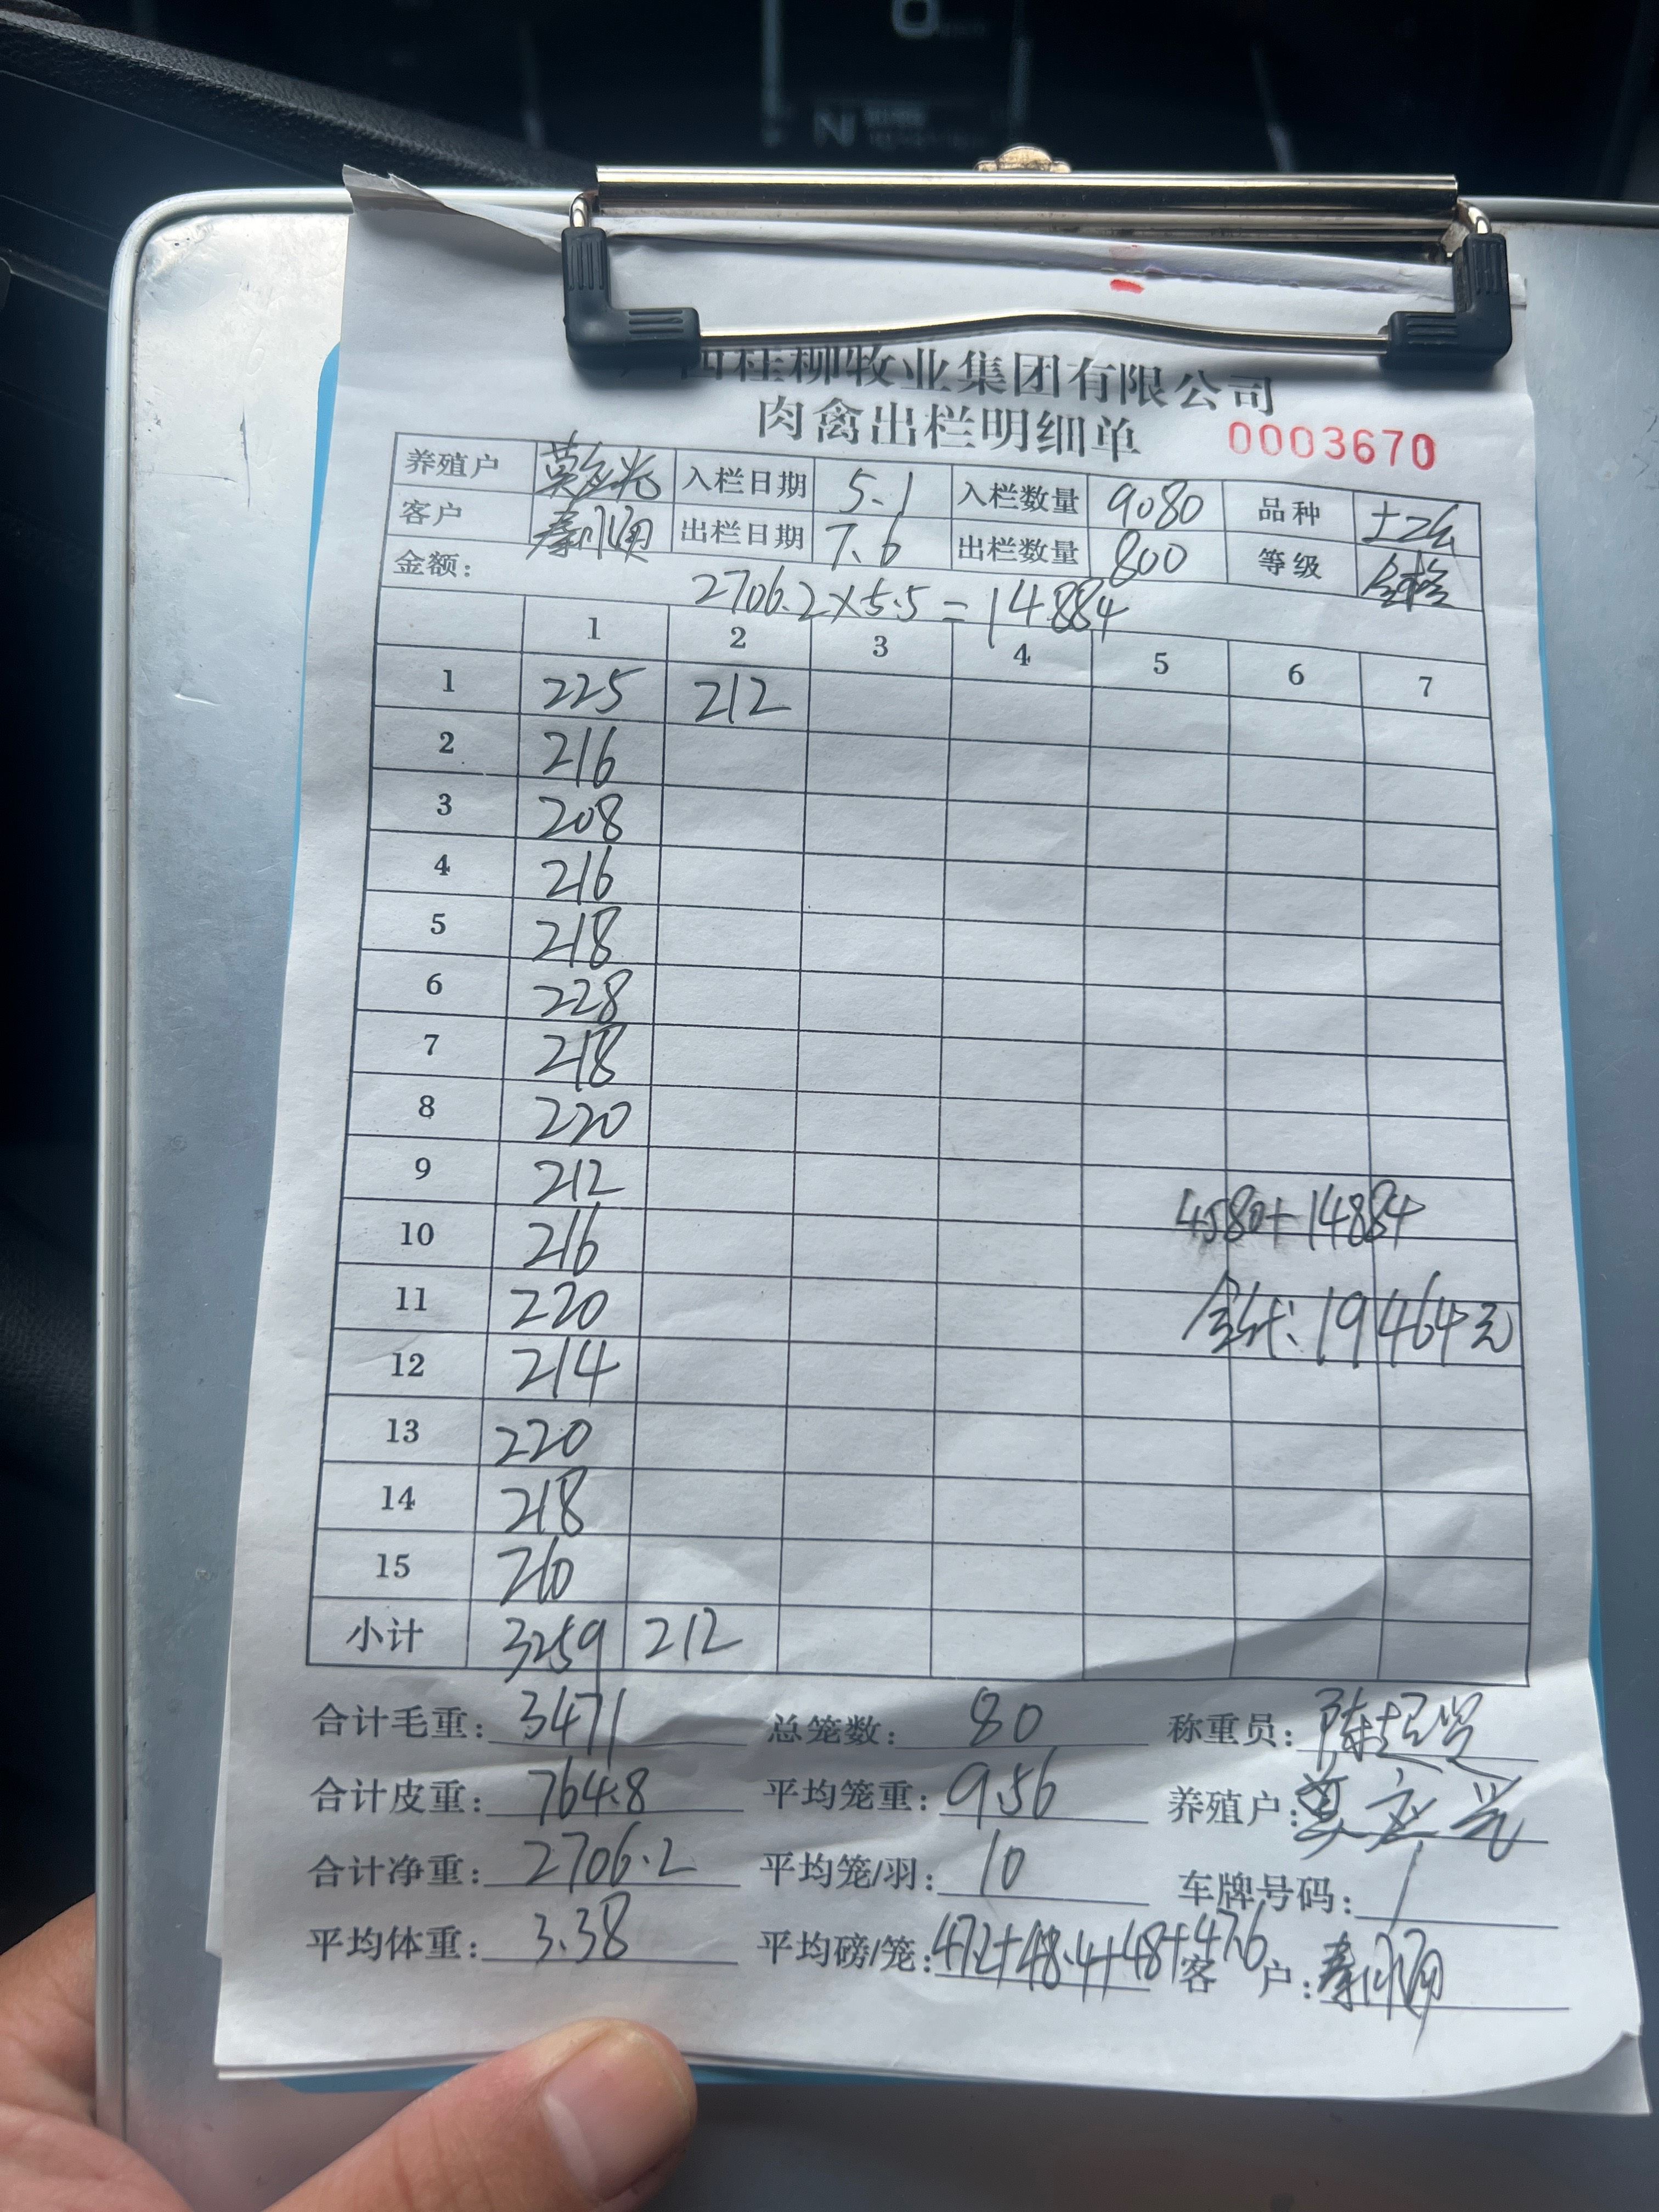 西桂柳牧业集团有限公司
肉禽出栏明细单 0003670
养殖户 入栏日期 5.1 入栏数量 9080 品种 土2
客户 秦 出栏日期 7.6 出栏数量 800 等级 合格
金额: 2706.2×5.5=14884
1 2 3 4 5 6 7
1 225 212
2 216
3 208
4 216
5 218
6 228
7 218
8 220
9 212
10 216
4580+14884
11 220
合计: 19464元
12 214
13 220
14 218
15 210
小计 3259 212
合计毛重: 3471 总笼数: 80 称重员: 陈
合计皮重: 764.8 平均笼重: 9.56 养殖户:
合计净重: 2706.2 平均笼/羽: 10 车牌号码: /
平均体重: 3.38 平均磅/笼: 47.2+48.4+48+47.6 客户: 秦